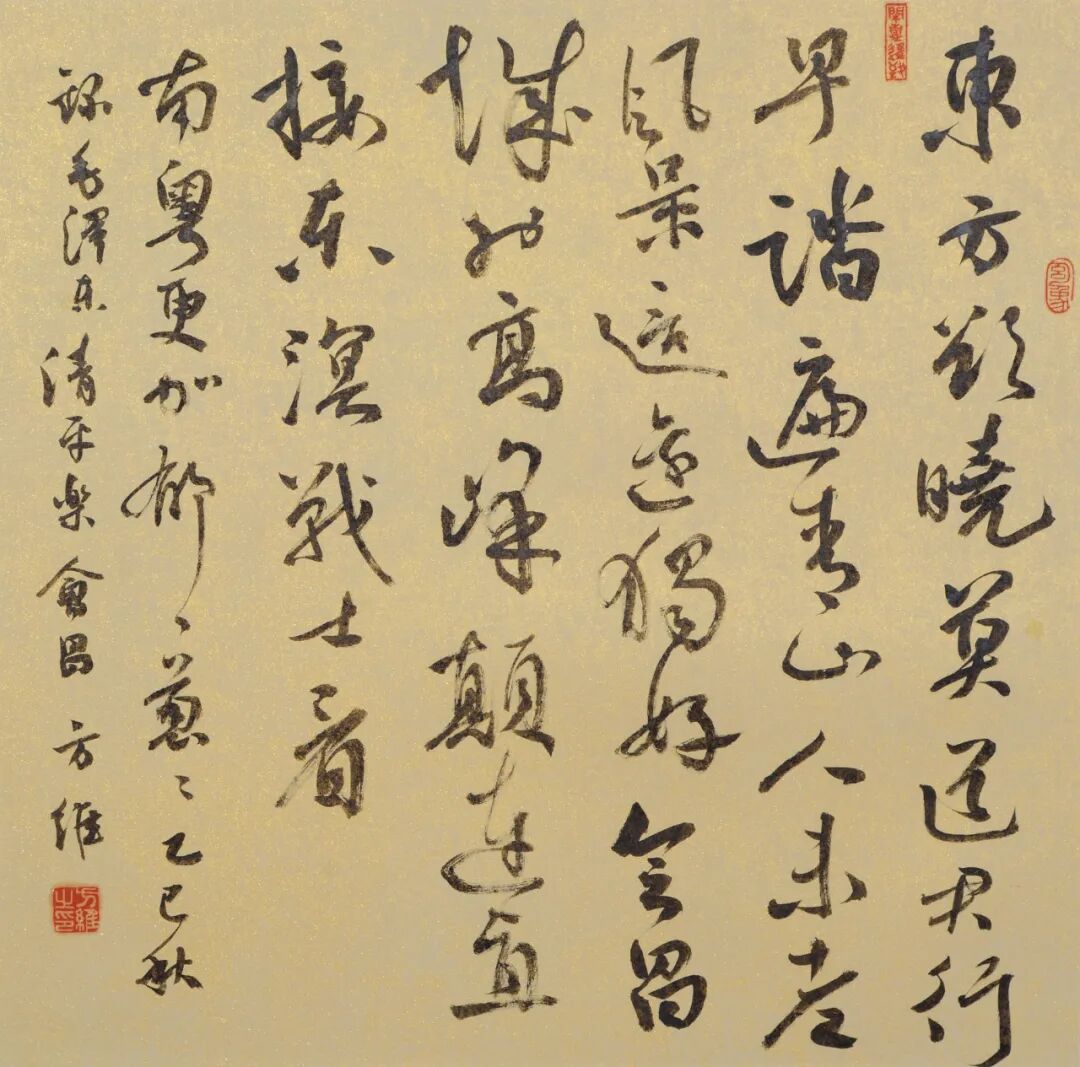 東方欲曉莫道君行
早踏遍青山人未老
風景這邊獨好会昌
城外高峰顛連直
接东溟戰士看
南粵更加郁〻葱〻乙巳秋
錄毛澤东清平樂會昌 方維
方維之印